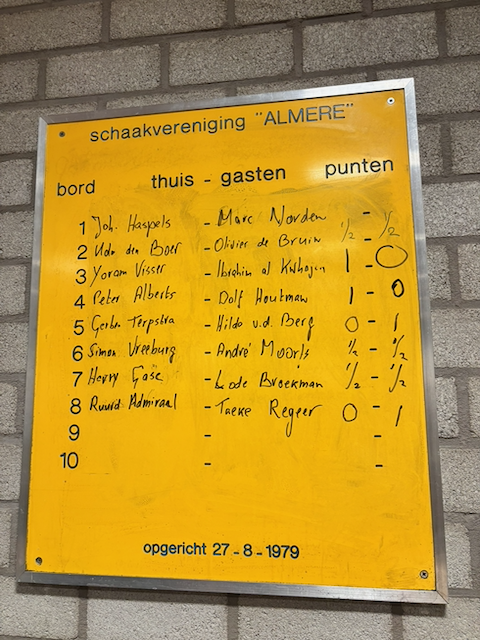 schaakvereniging "ALMERE"
bord thuis - gasten punten
1 Joh. Haspels - Marc Norden -
2 Udo den Boer - Olivier de Bruin 1/2 - 1/2
3 Yoram Visser - Ibrahim al 1 - 0
4 Peter Alberts - Dolf Houtman 1 - 0
5 Gerben Terpstra - Hilde v.d. Berg 0 - 1
6 Simon Vreeburg - André 1/2 - 1/2
7 Harry - Lode Broekman 1/2 - 1/2
8 Ruurd Admiraal - Taeke Regeer 0 - 1
9 - -
10 - -
opgericht 27-8-1979